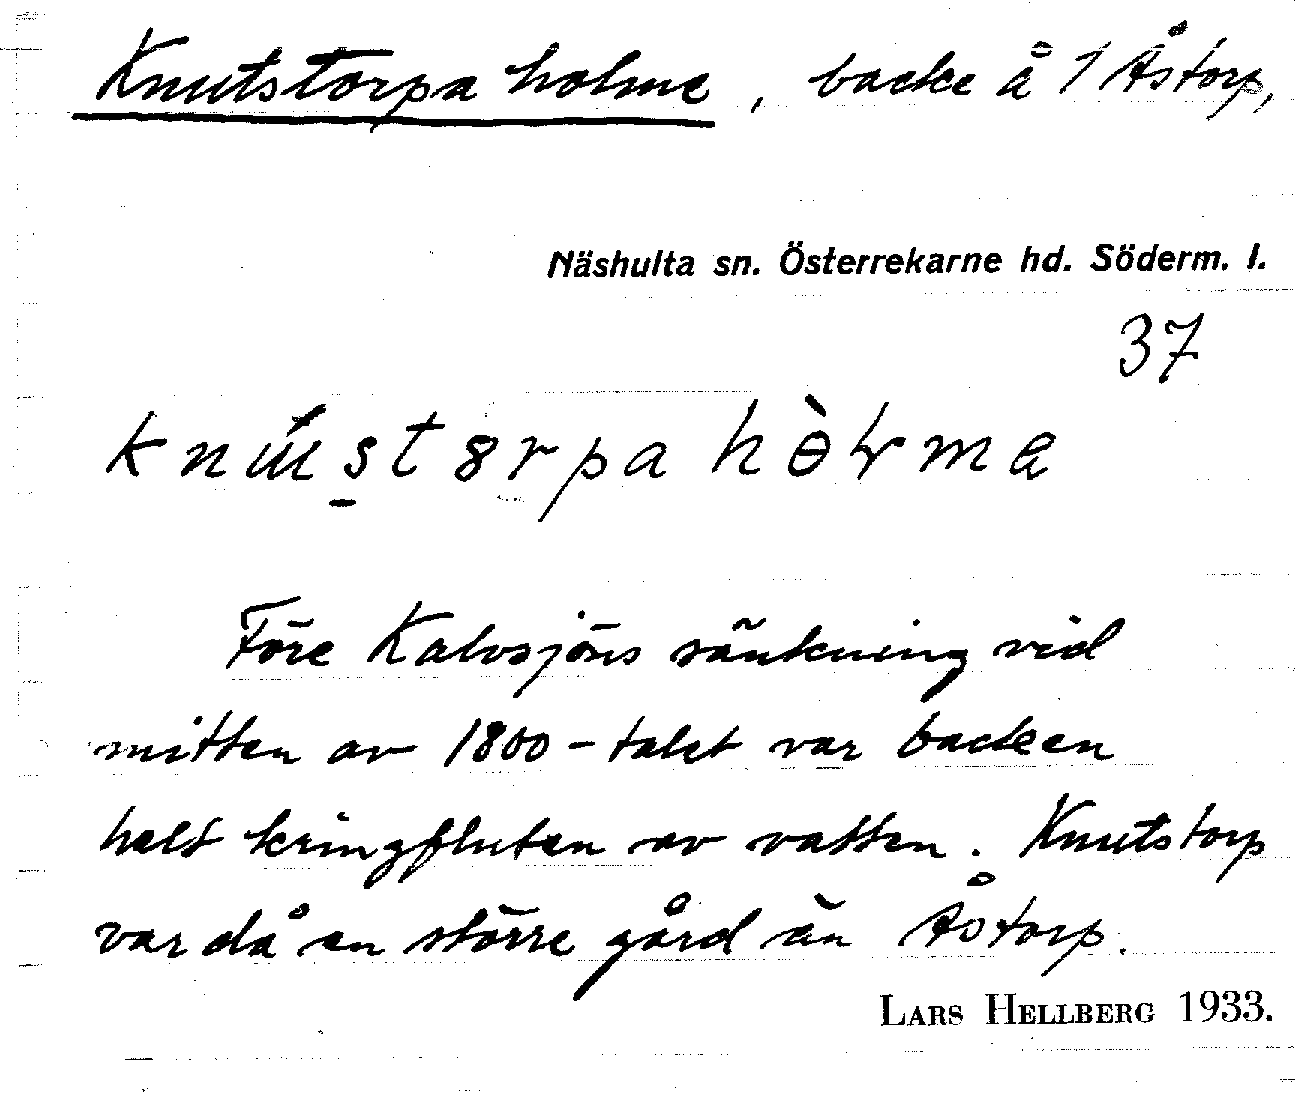 Knutstorpa holme, backe å 1 Åstorp,
Näshulta sn. Österrekarne hd. Söderm. l.
37
Före Kalvsjöns sänkning vid
mitten av 1800-talet var backen
helt kringfluten av vatten. Knutstorp
var då en större gård än Åstorp.
LARS HELLBERG 1933.